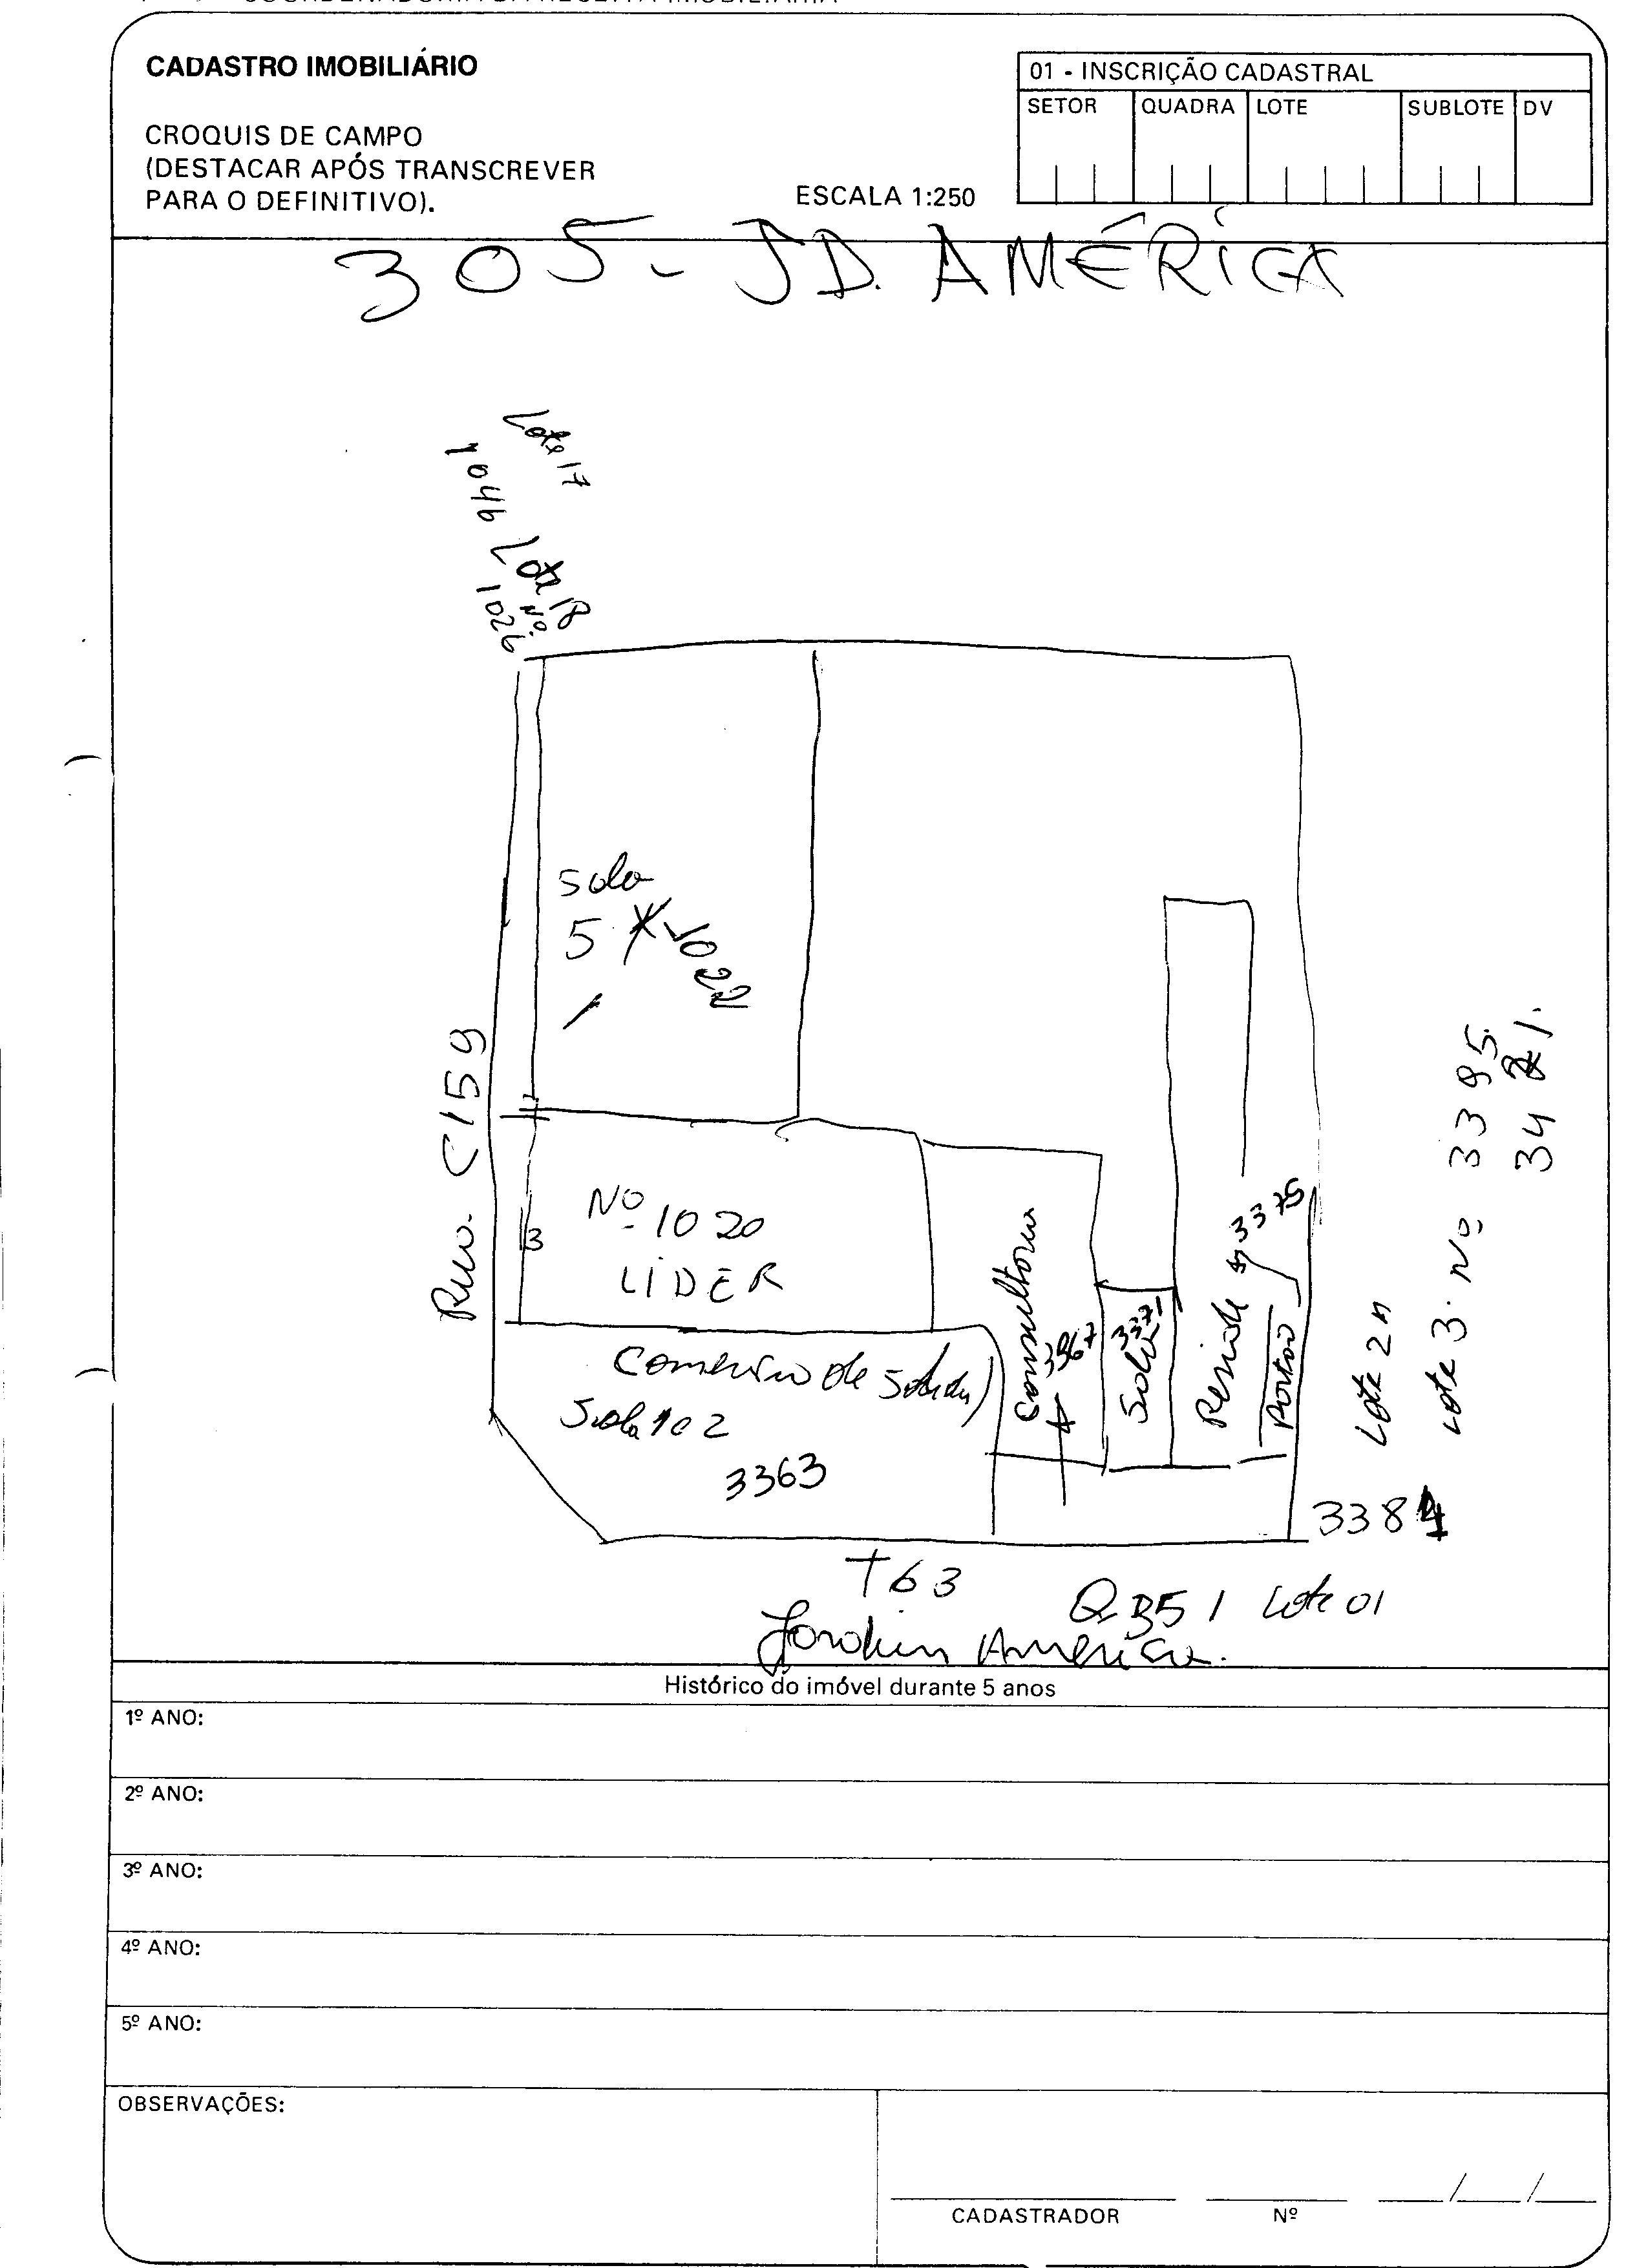 COORDENADORIA DA RECEITA IMOBILIÁRIA
CADASTRO IMOBILIÁRIO
01 - INSCRIÇÃO CADASTRAL
SETOR QUADRA LOTE SUBLOTE DV
CROQUIS DE CAMPO
(DESTACAR APÓS TRANSCREVER
PARA O DEFINITIVO).
ESCALA 1:250
305 - JD. AMÉRICA
Lote 17
1046
Lote 18
Nº
1026
Sala
5
1022
Rua. C159
3395.
3421.
Nº 1020
LIDER
3
Consultorio
3367
3371
Sala
Reside
3375
Portão
Lote 2
Lote 3. Nº
Comercio de
Sala 102
3363
3384
T63
Q 351 Lote 01
Jardim America.
Histórico do imóvel durante 5 anos
1º ANO:
2º ANO:
3º ANO:
4º ANO:
5º ANO:
OBSERVAÇÕES:
CADASTRADOR Nº / /